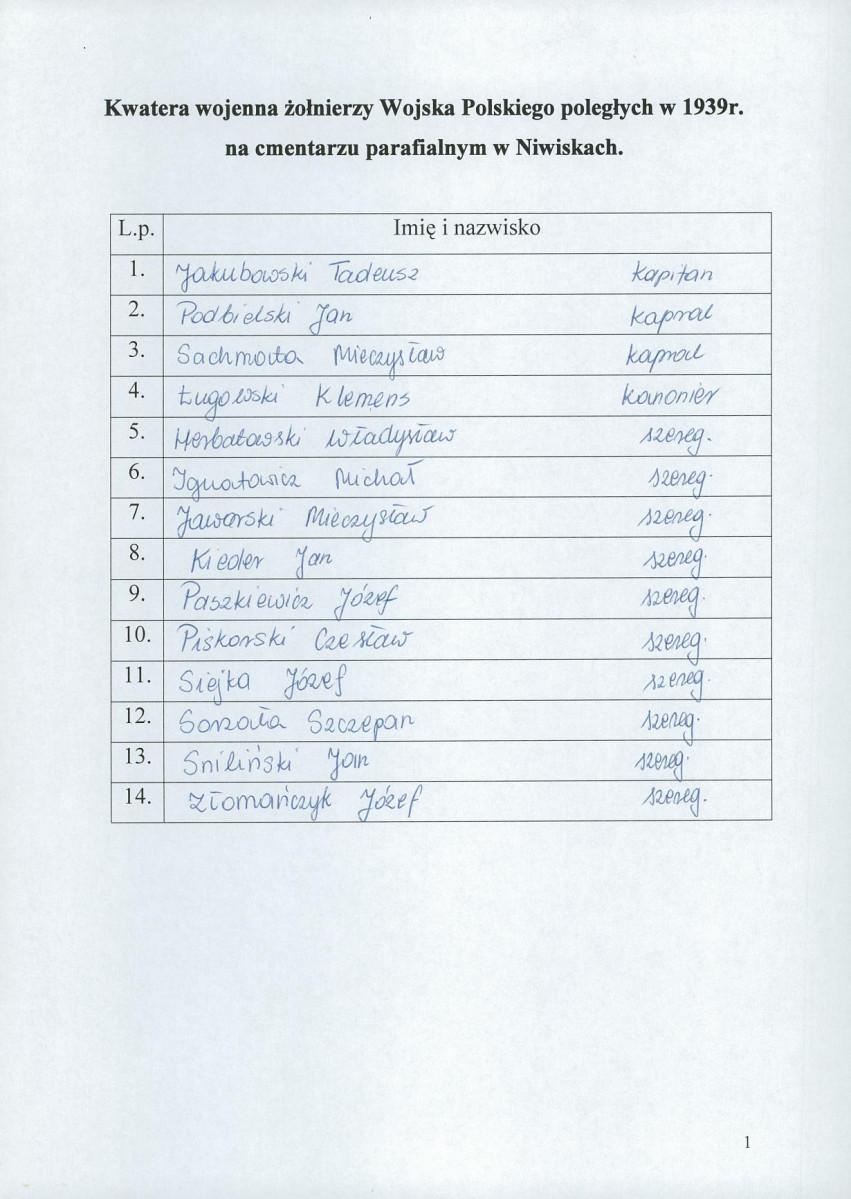 Kwatera wojenna żołnierzy Wojska Polskiego poległych w 1939r.
na cmentarzu parafialnym w Niwiskach.
L.p. Imię i nazwisko
1. Jakubowski Tadeusz kapitan
2. Podbielski Jan kapral
3. Sachmata Mieczysław kapral
4. Ługowski Klemens kanonier
5. Herbatowski Władysław szereg.
6. Ignatowicz Michał szereg.
7. Jaworski Mieczysław szereg.
8. Kieder Jan szereg.
9. Paszkiewicz Józef szereg.
10. Piskorski Czesław szereg.
11. Siejka Józef szereg.
12. Szczepan szereg.
13. Sniliński Jan szereg.
14. Złomańczyk Józef szereg.
1